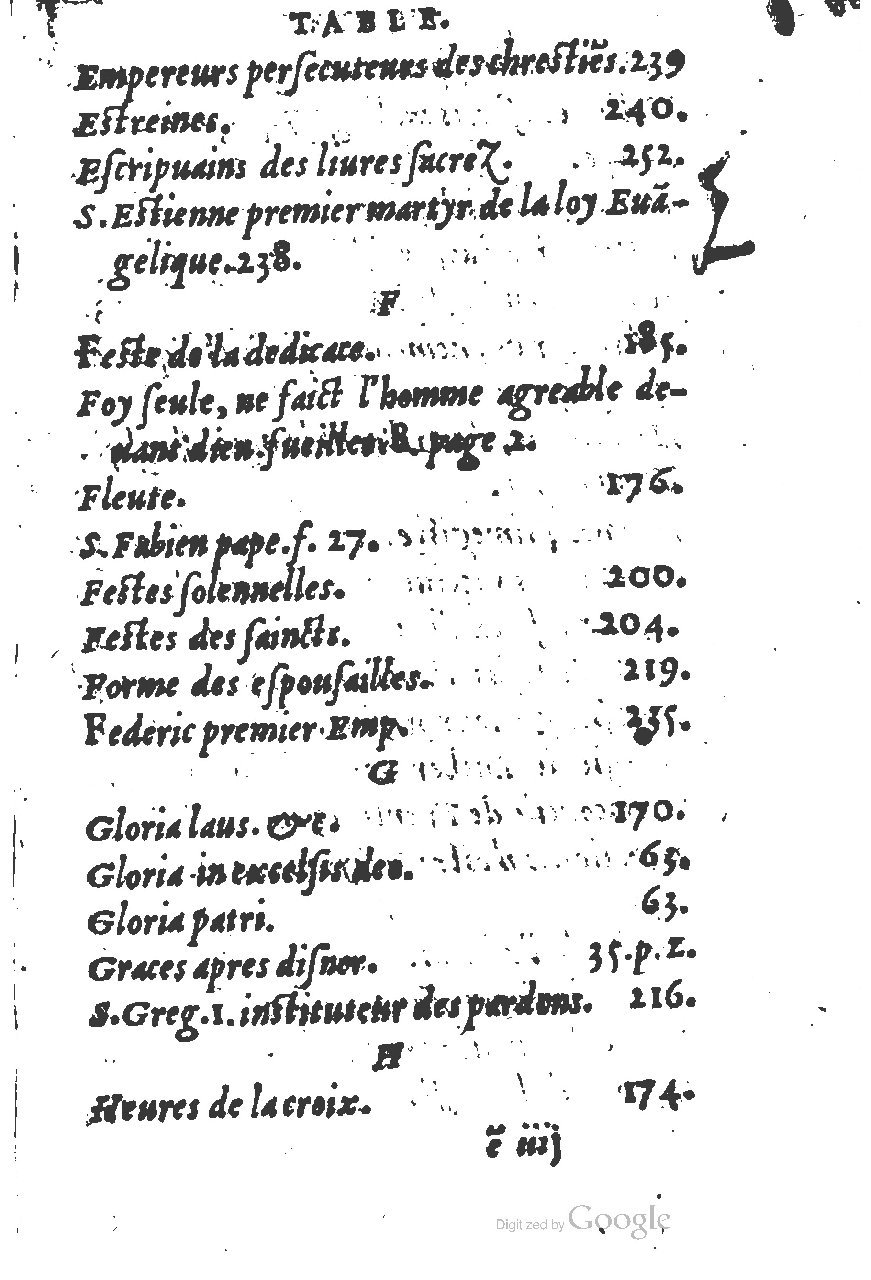 TABLE.
Empereurs perſecuteurs des chreſtiẽs. 239
Eſtreines. 240.
Eſcripuains des liures ſacrez. 252.
S. Eſtienne premier martyr de la loy Euã-
gelique. 238.
F
Feſte de la dedicace. 185.
Foy ſeule, ne faict l'homme agreable de-
uant dieu. fueillet. 8. page 2.
Fleute. 176.
S. Fabien pape. f. 27.
Feſtes ſolennelles. 200.
Feſtes des ſaincts. 204.
Forme des eſpouſailles. 219.
Federic premier Emp. 235.
G
Gloria laus. &c. 170.
Gloria in excelſis deo. 63.
Gloria patri. 63.
Graces apres diſner. 35. p. 2.
S. Greg. 1. inſtituteur des pardons. 216.
H
Heures de la croix. 174.
ẽ iiij
Digitized by Google